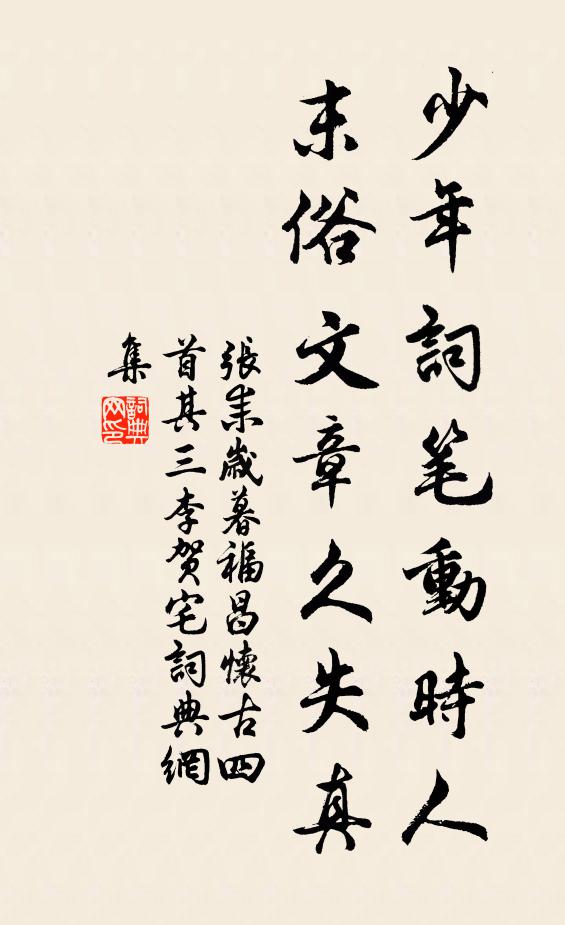 少年詞笔動時人
末俗文章久失真
張耒歲暮福昌懷古四
首其三李賀宅詞典網
集
詞典
网印